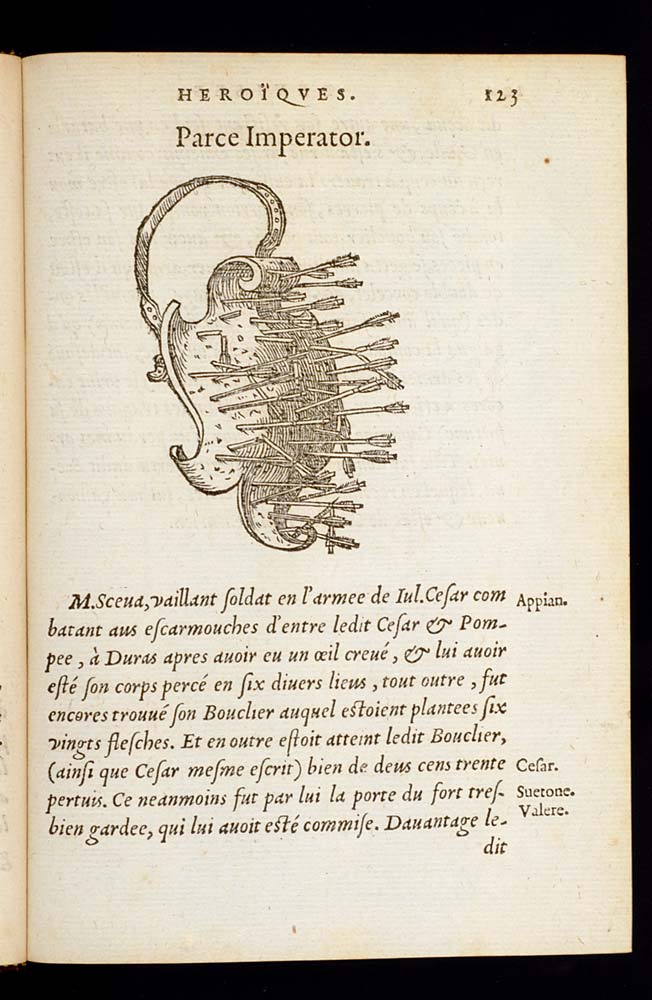 HEROÏQVES. 123
Parce Imperator.
M.Sceua, vaillant ſoldat en l'armee de Iul.Ceſar com
batant aus eſcarmouches d'entre ledit Ceſar & Pom-
pee, à Duras apres auoir eu un œil creué, & lui auoir
eſté ſon corps percé en ſix diuers lieus, tout outre, fut
encores trouué ſon Bouclier auquel eſtoient plantees ſix
vingts fleſches. Et en outre eſtoit atteint ledit Bouclier,
(ainſi que Ceſar meſme eſcrit) bien de deus cens trente
pertuis. Ce neanmoins fut par lui la porte du fort treſ-
bien gardee, qui lui auoit eſté commiſe. Dauantage le-
dit
Appian.
Ceſar.
Suetone.
Valere.